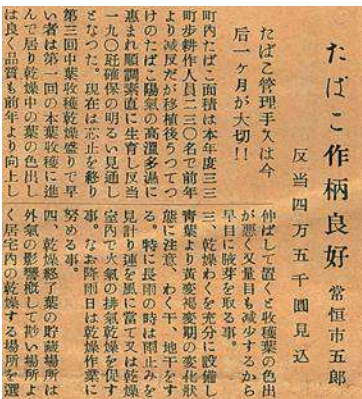 たばこ作柄良好 常恒市五郎
反当四万五千圓見込
たばこ管理手入は今
后一ケ月が大切!!
町内たばこ面積は本年度三三
町歩耕作人員二三〇名で前年
より減反だが移植後うつてつ
けのたばこ陽氣の高温多濕に
惠まれ順調素直に生育し反当
一九〇瓩確保の明るい見通し
となつた。現在は芯止を終り
第三回中葉收穫乾燥盛りで早
い者は第一回の本葉收穫に進
んで居り乾燥中の葉の色出し
は良く品質も前年より向上し
伸ばして置くと收穫葉の色出
が悪く又量目も減少するから
早目に腋芽を取る事。
三、乾燥わくを充分に設備し
靑葉より黄変褐変期の変化狀
態に注意、わく干、地干をす
る。特に長雨の時は雨止みを
見計り連を風に當て又は乾燥
室内で火氣の排氣乾燥を促す
事。なお降雨日は乾燥作業に
努める事。
四、乾燥終了葉の貯藏場所は
外氣の影響極して尠い場所よ
く居宅内の乾燥する場所を選